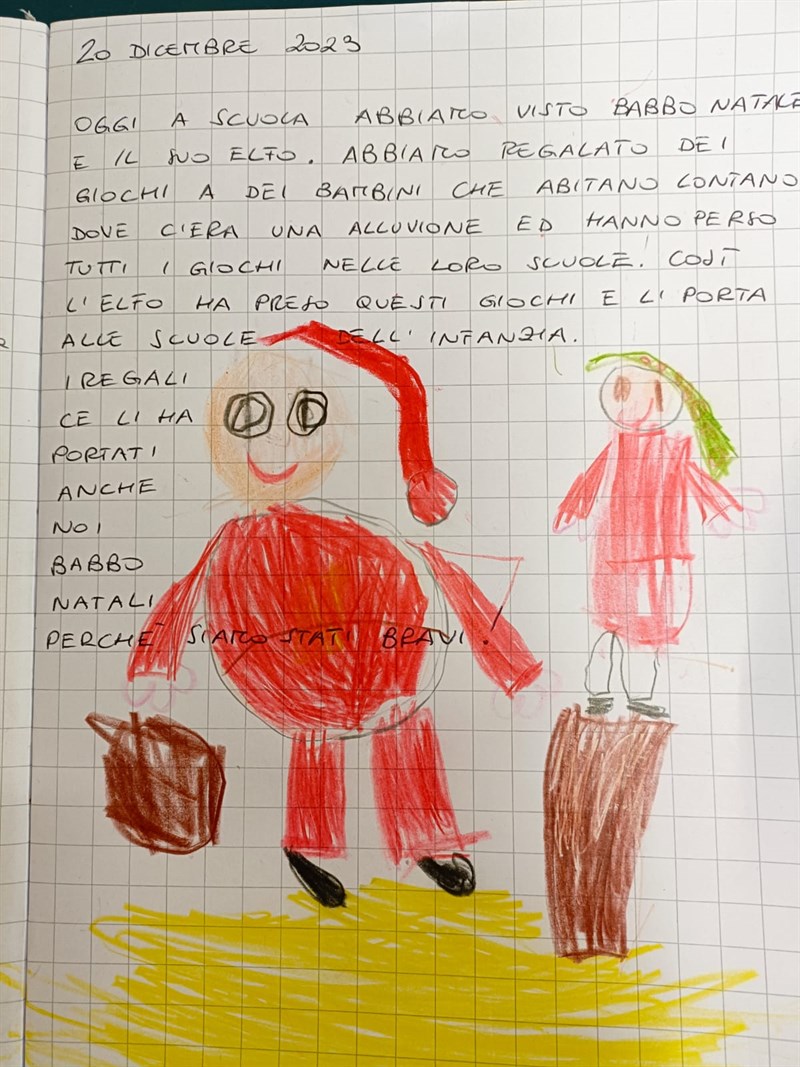 20 DICEMBRE 2023
OGGI A SCUOLA ABBIAMO VISTO BABBO NATALE
E IL SUO ELFO. ABBIAMO REGALATO DEI
GIOCHI A DEI BAMBINI CHE ABITANO LONTANO
DOVE C'ERA UNA ALLUVIONE ED HANNO PERSO
TUTTI I GIOCHI NELLE LORO SCUOLE. COSÌ
L'ELFO HA PRESO QUESTI GIOCHI E LI PORTA
ALLE SCUOLE DELL'INFANZIA.
I REGALI
CE LI HA
PORTATI
ANCHE
NOI
BABBO
NATALI
PERCHÈ SIAMO STATI BRAVI!